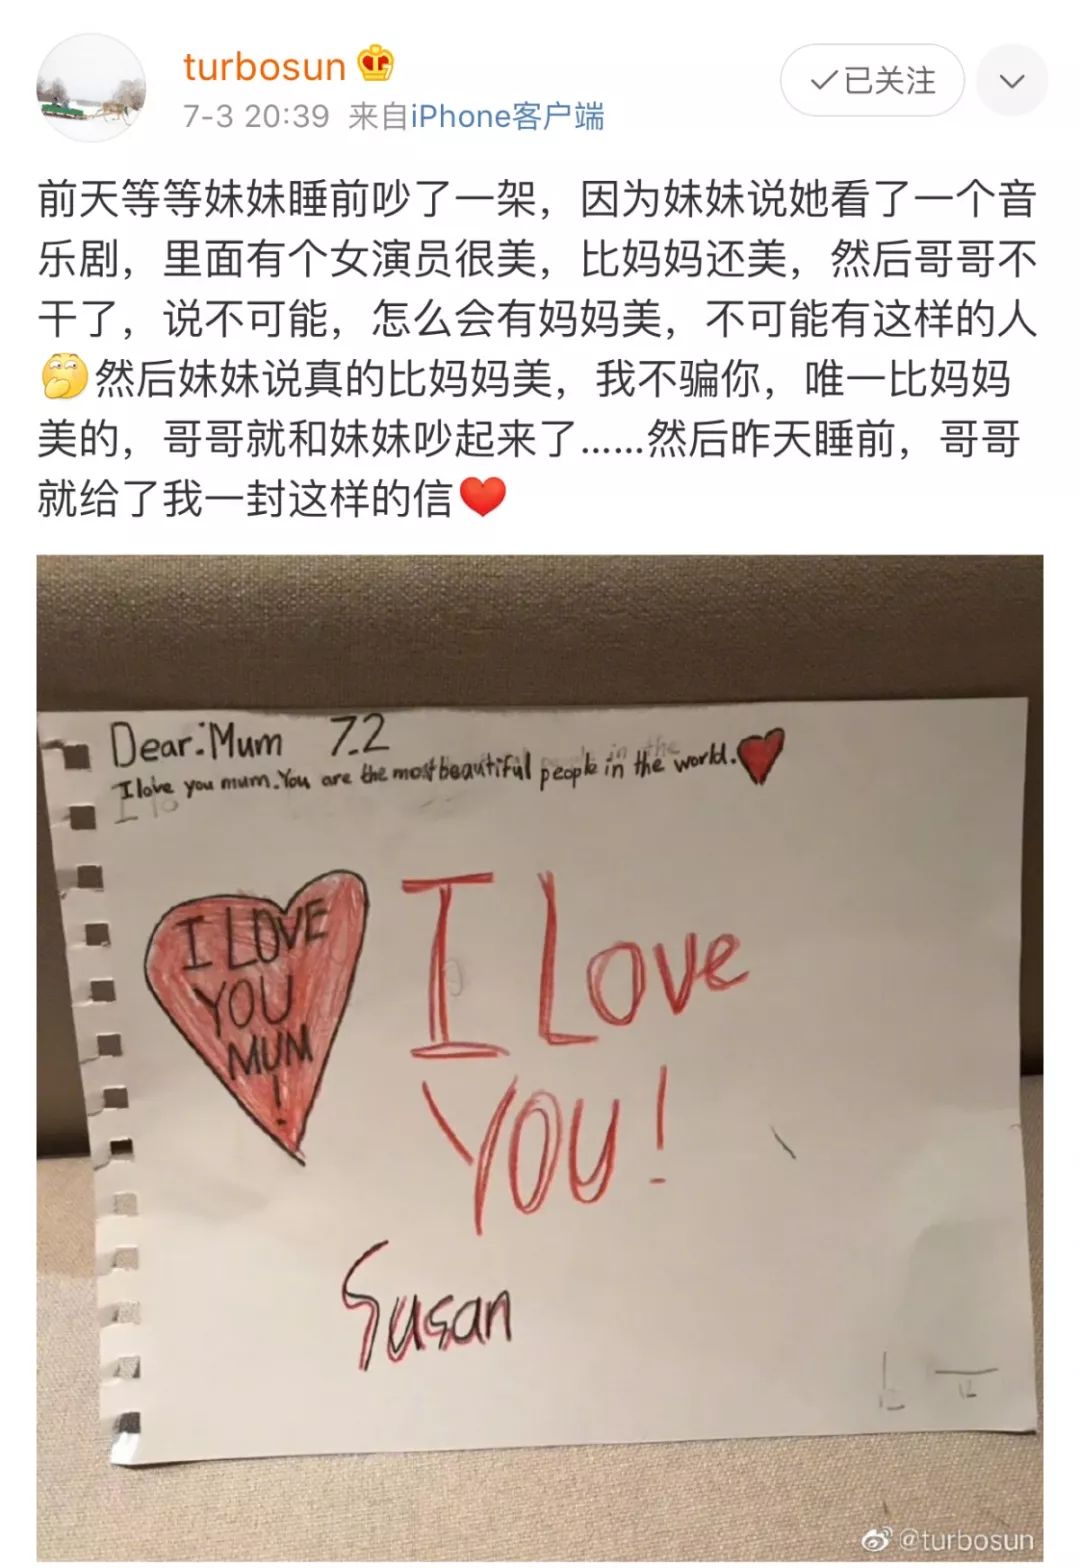 turbosun
已关注
7-3 20:39 来自iPhone客户端
前天等等妹妹睡前吵了一架，因为妹妹说她看了一个音
乐剧，里面有个女演员很美，比妈妈还美，然后哥哥不
干了，说不可能，怎么会有妈妈美，不可能有这样的人
然后妹妹说真的比妈妈美，我不骗你，唯一比妈妈
美的，哥哥就和妹妹吵起来了……然后昨天睡前，哥哥
就给了我一封这样的信
Dear:Mum 7.2
I love you mum.You are the most beautiful people in the world.
I LOVE
YOU
MUM
!
I Love
YOU!
Susan
@turbosun